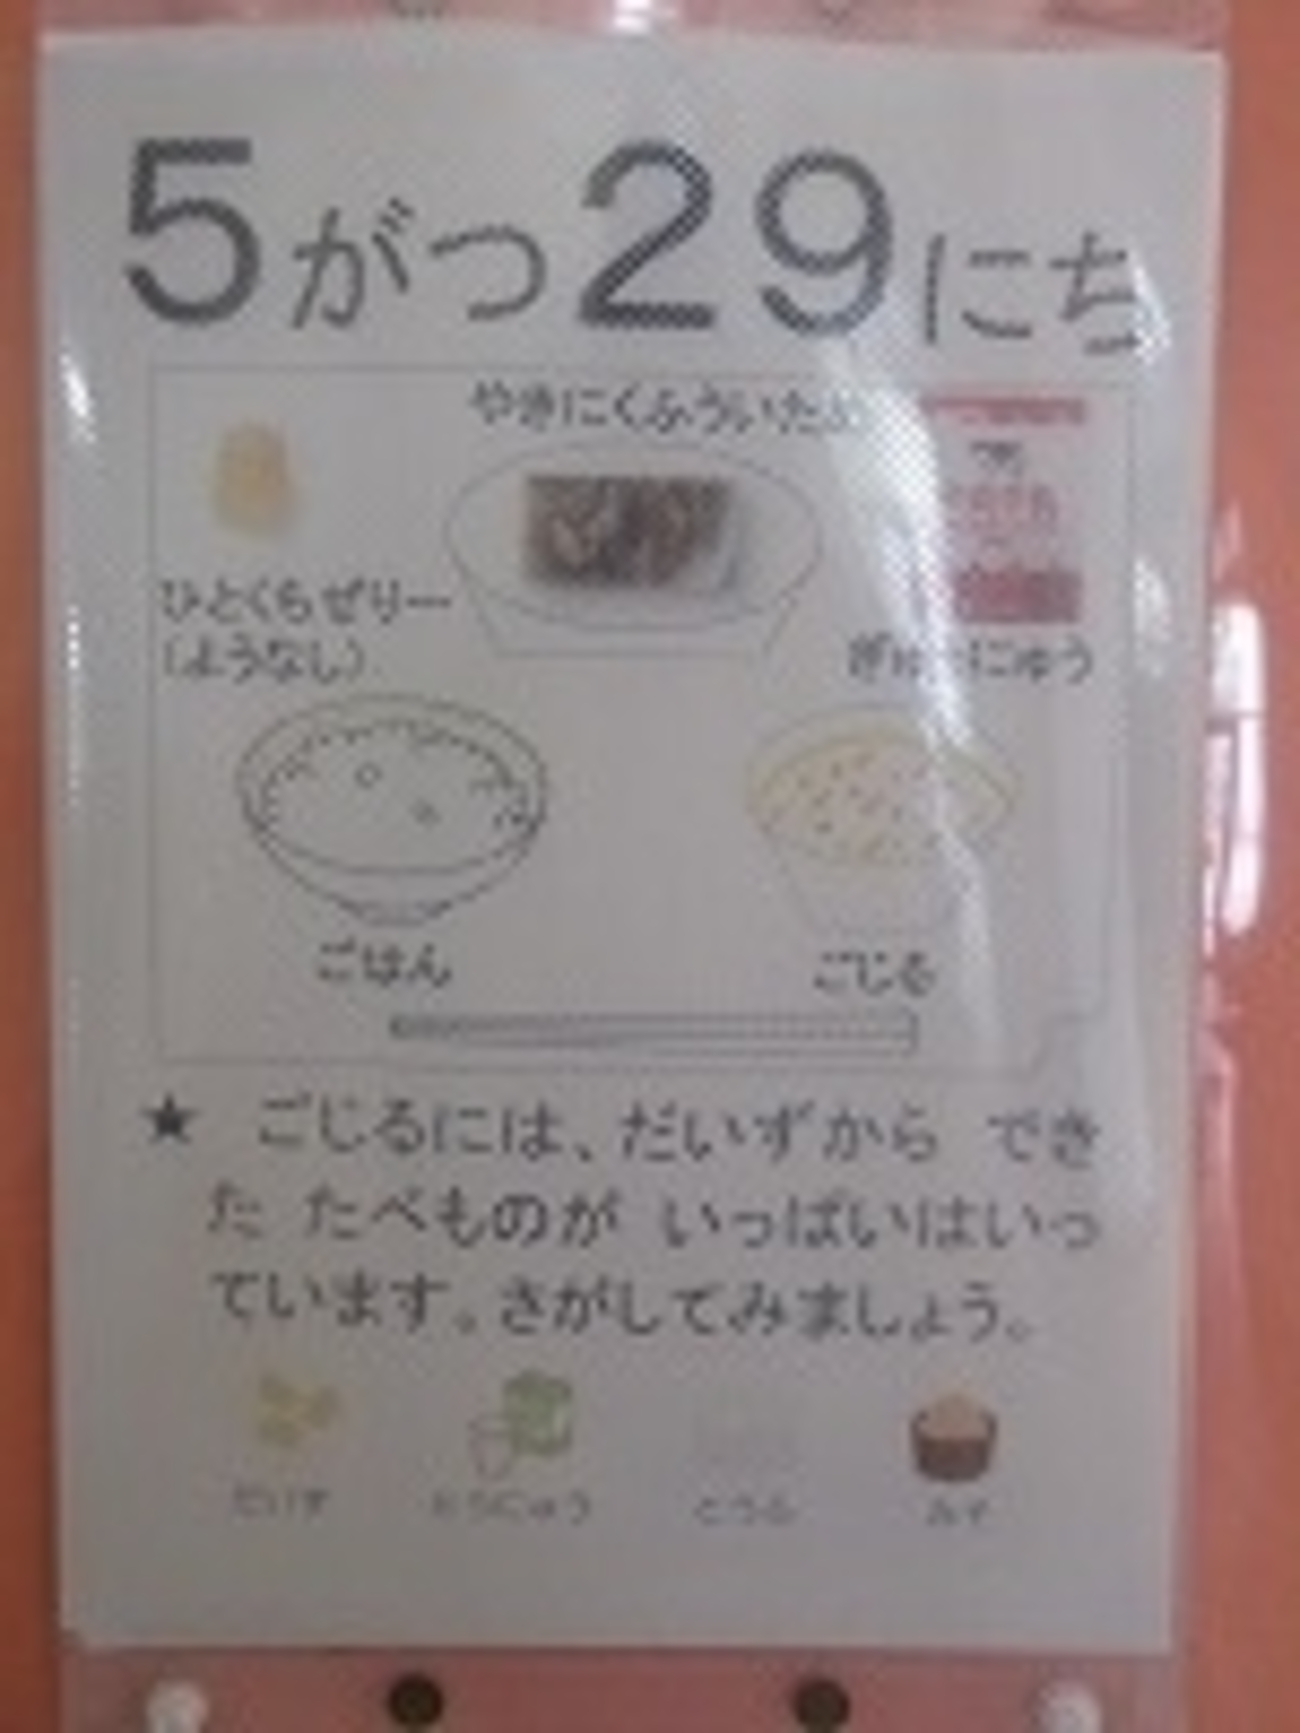 5がつ29にち
やきにくふういため
ひとくちゼリー
(ようなし)
ぎゅうにゅう
ごはん
ごじる
★ ごじるには、だいずから でき
た たべものが いっぱいはいっ
ています。さがしてみましょう。
だいず
とうにゅう
とうふ
みそ